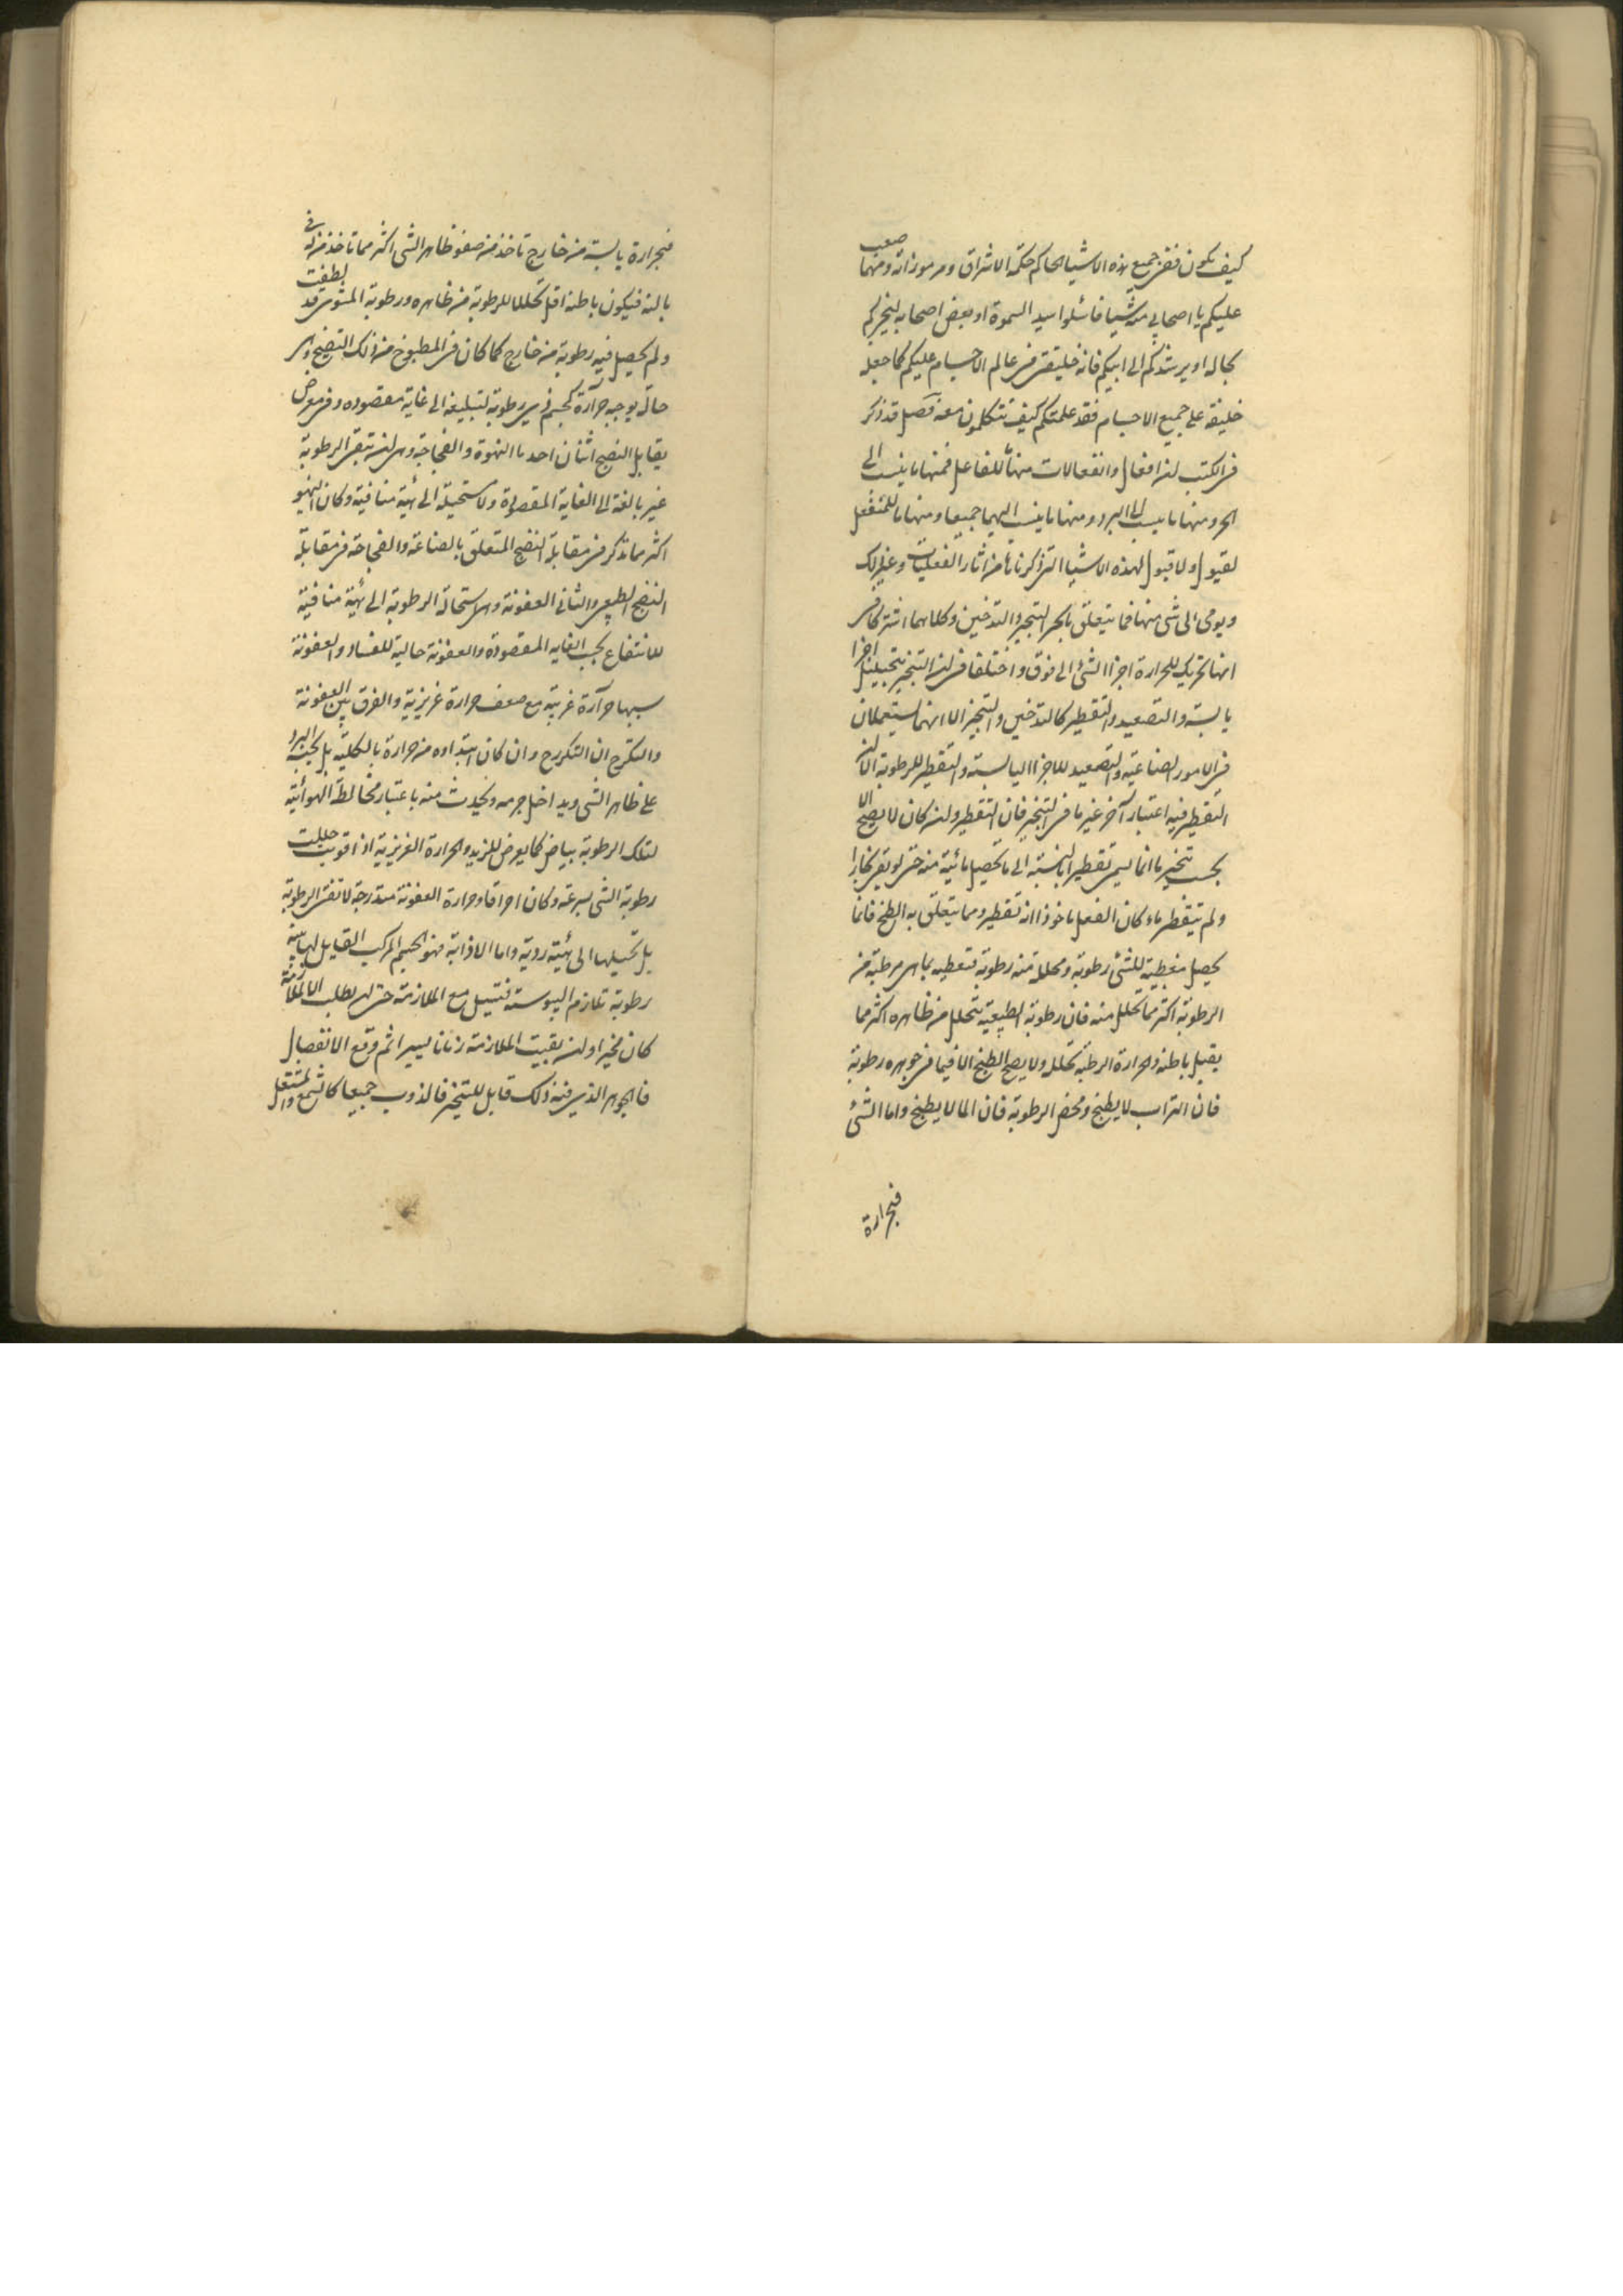 كيف يكون ففى جميع هذه الاشيا الحاكم حكمة الاشراق ومرموزاته ومهما صعب
عليكم يا اصحابى منه شيا فاسئلوا سيد السموة او بعض اصحابه ليخبركم
بحاله او يرشدكم الى ابيكم فانه خليفتى فى عالم الاجسام عليكم كما جعله
خليفة على جميع الاجسام فقد علمتكم كيف تتكلمون معه فصل قد ذكر
فى الكتب ان افعال وانفعالات منها للفاعل فمنها ما ينسب الى
الحر ومنها ما ينسب الى البرد ومنها ما ينسب اليهما جميعا ومنها ما للمنفعل
لقبول ولا قبول لهذه الاشيا التى ذكرناها من اثار الفعليات وغير ذلك
ويومى الى شى منها فما يتعلق بالحر التبخير والتدخين وكلاهما اشتركا فى
انها تحريك للحرارة اجزا الشئ الى فوق واختلفا فى ان التبخير اجزا
يابسة والتصعيد والتقطير كالتدخين والتبخير الا انهما يستعملان
فى الامور الصناعية والتصعيد للاجزا اليابسة والتقطير للرطوبة الا ان
التقطير فيه اعتبار آخر غير ما فى التبخير فان التقطير وان كان لا يصح الا
بحسب تبخير ما انما يسمى تقطيرا بالنسبة الى ما تحصيل مائية منه حتى لو بقى بخارا
ولم يتقطر ماء كان الفعل ماخوذا انه تقطير ومما يتعلق به الطبخ فانما
يحصل معطية للشئ رطوبة ومحللة منه رطوبة فتعطيه بما هى مرطبة من
الرطوبة اكثر مما تحلل منه فان رطوبة الطبيعية تتحلل من ظاهره اكثر مما
يقبل باطنه والحرارة الرطبة تحلل ولا يصح الطبخ الا فيما فى جوهره رطوبة
فان التراب لا يطبخ ومحض الرطوبة فان الما لا يطبخ واما الشئ
فبحرارة
فبحرارة يابسة من خارج تاخذ من صفو ظاهر الشى اكثر مما تاخذ من له فى
باطنه فيكون باطنه اقل تحللا للرطوبة من ظاهره ورطوبة المشوى قد لطفت
ولم يحصل فيه رطوبة من خارج كما كان فى المطبوخ من ذلك النضج وهى
حالة يوجبه حرارة لجسم ذى رطوبة لتبليغه الى غاية مقصوده وفى معرض
يقابل النضج اثنان احدها النهوة والفجاجة وهى ان تبقى الرطوبة
غير بالغة الى الغاية المقصودة ولا مستحيلة الى هيئة منافية وكان النهو
اكثر ما تذكر فى مقابلة النضج المتعلق بالصناعة والفجاجة فى مقابلة
النضج الطبيعى والثانى العفونة وهى استحالة الرطوبة الى هيئة منافية
للانتفاع بحسب الغايه المقصودة والعفونة حالية للفساد والعفونة
سببها حرارة غريبة مع ضعف حرارة غريزية والفرق بين العفونة
والتكرج ان التكرج وان كان ابتداوه من حرارة بالكلية بل بحسب البرد
على ظاهر الشى ويداخل جرمه ويحدث منه باعتبار مخالطة الهوائية
لتلك الرطوبة بياض كما يعرض للزبد والحرارة الغريزية اذا قويت حللت
رطوبة الشى بسرعة وكان احراقا وحرارة العفونة متدرجة لا تفنى الرطوبة
بل تحيلها الى هيئة ردية واما الاذابة فهو الجسم المركب القابل لها بينة
رطوبة تلازم اليبوسة فتسيل مع الملازمة حتى ان بطلت الملازمة
كان مخيرا وان بقيت الملازمة زمانا يسيرا ثم وقع الانفصال
فالجوهر الذى فيه ذلك قابل للتبخر فالذوب جميعا كالشمع والمشتعل